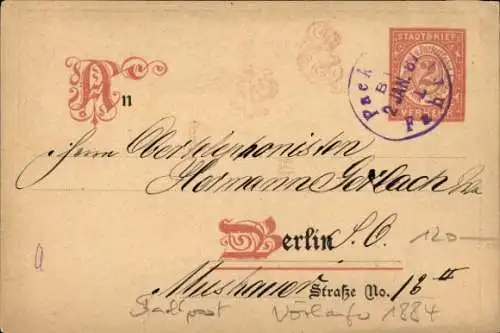 STADTBRIEF
2
Pack
2 JAN. 87
An
Herrn Obertelephonisten
Hermann Gerlach
Berlin S.O.
120-
Straße No. 18 II
Stadtpost Vorläufer 1884